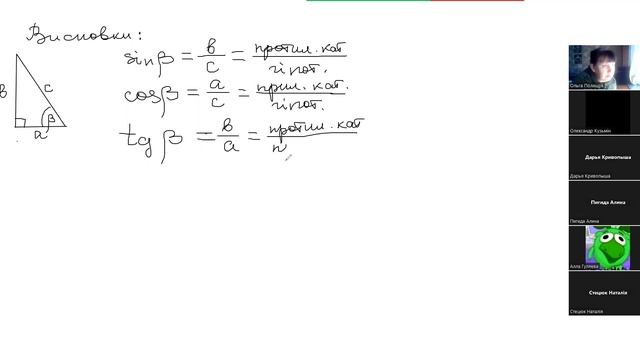 Висновки:
sin β = в/с = протил. кат/гіпот.
cos β = а/с = прил. кат./гіпот.
tg β = в/а = протил. кат/п
в
с
а
β
Ольга Полищук
Олександр Кузьмін
Дарья Кривопыша
Дарья Кривопыша
Пигида Алина
Пигида Алина
Алла Гуляева
Стецюк Наталія
Стецюк Наталія